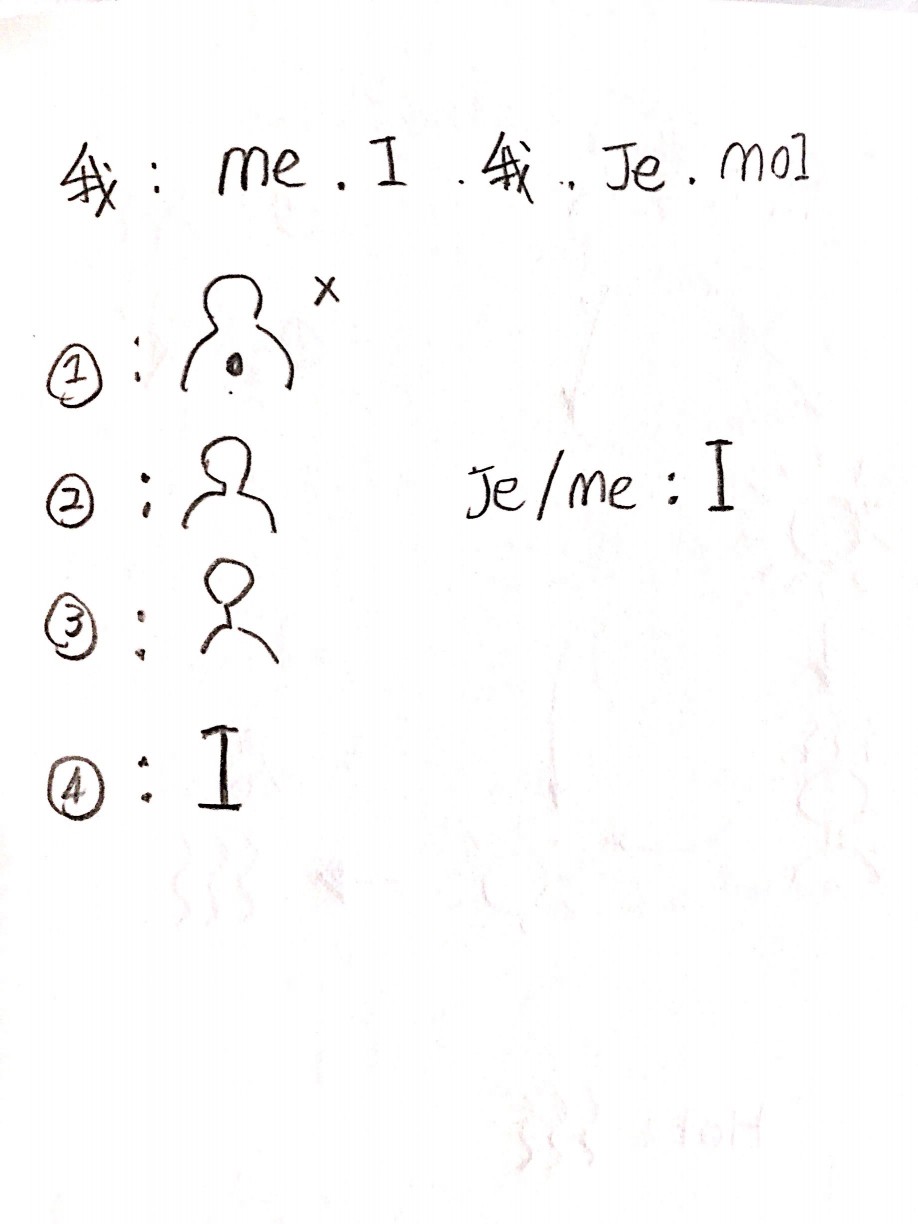 我: me. I. 我.. Je. moI
①: x
②:
je/me: I
③:
④: I